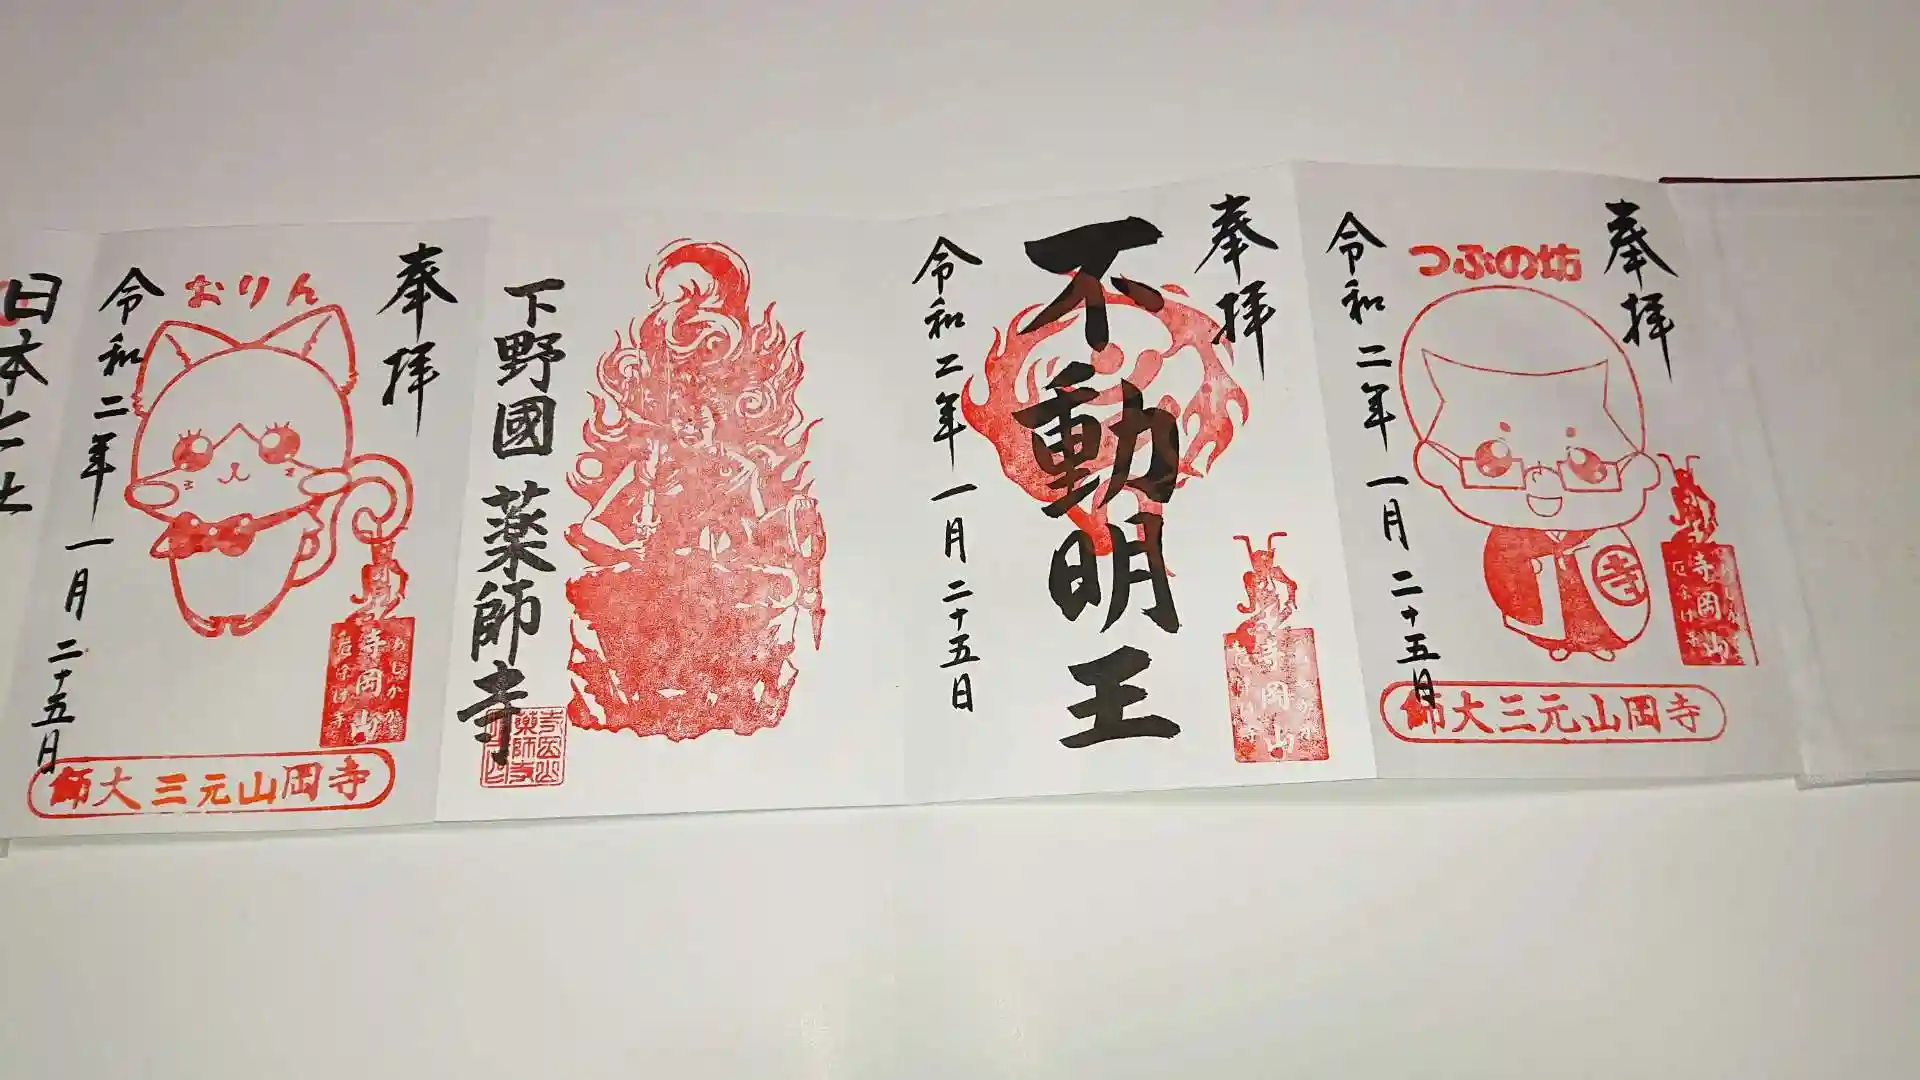 奉拝
つぶの坊
令和二年一月二十五日
寺
寺岡山
厄よけ寺
寺岡山元三大師
奉拝
不動明王
令和二年一月二十五日
寺岡山
下野國 薬師寺
奉拝
おりん
令和二年一月二十五日
あしかが
寺岡山
厄よけ寺
寺岡山元三大師
日本